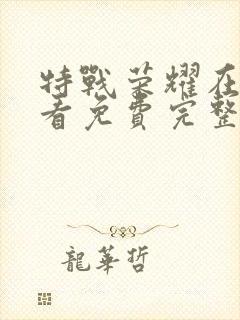 特戰荣耀在
看免費完整
龍華哲